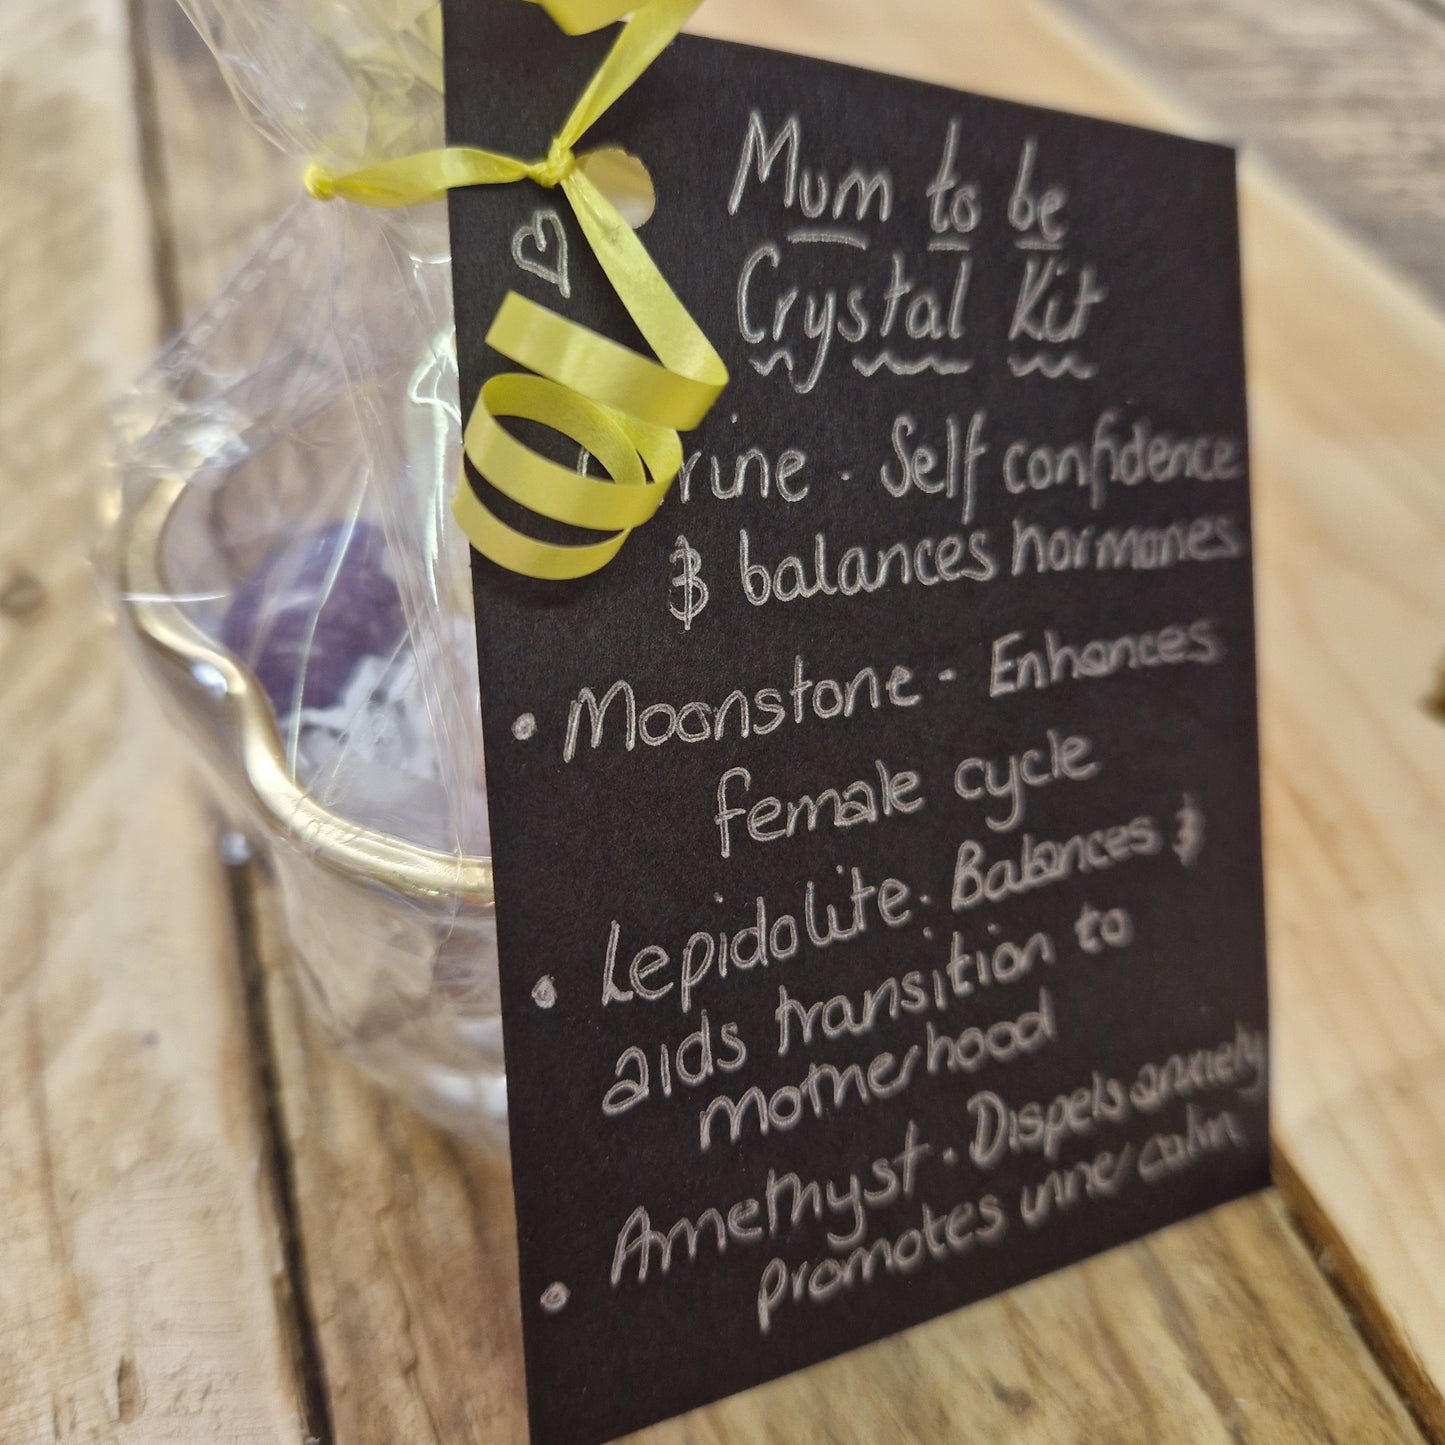 Mum to be
Crystal Kit
rine · Self confidence
& balances hormones
• Moonstone - Enhances
female cycle
• Lepidolite · Balances &
aids transition to
motherhood
• Amethyst · Dispels anxiety
promotes inner calm